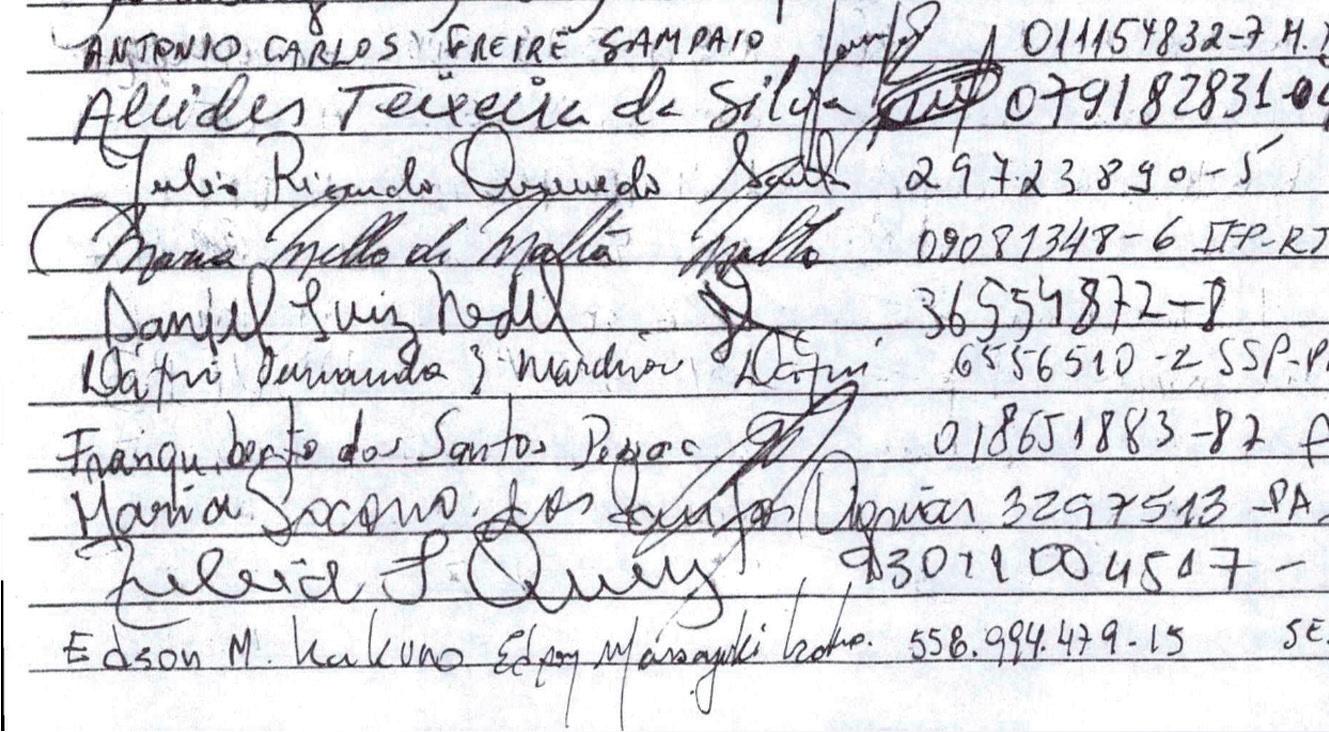 ANTONIO CARLOS FREIRE SAMPAIO 011154832-7 M.
Alcides Teixeira da Silva 079182831-
Julio Ricardo Quevedo 29723890-5
Maria Mello de Malta Malta 09081348-6 IFP-RJ
Daniel Luiz Nedel 36554872-8
Dafni Fernanda Z Marchior Dafni 6556510-2 SSP-P
Franqu berto dos Santos Pessoa 018651883-87
Maria Socorro dos Santos 3297513-PA
S Quey 93011004517-
Edson M. Kakuno Edson Massayuki Kakuno 558.994.479-15 SE.